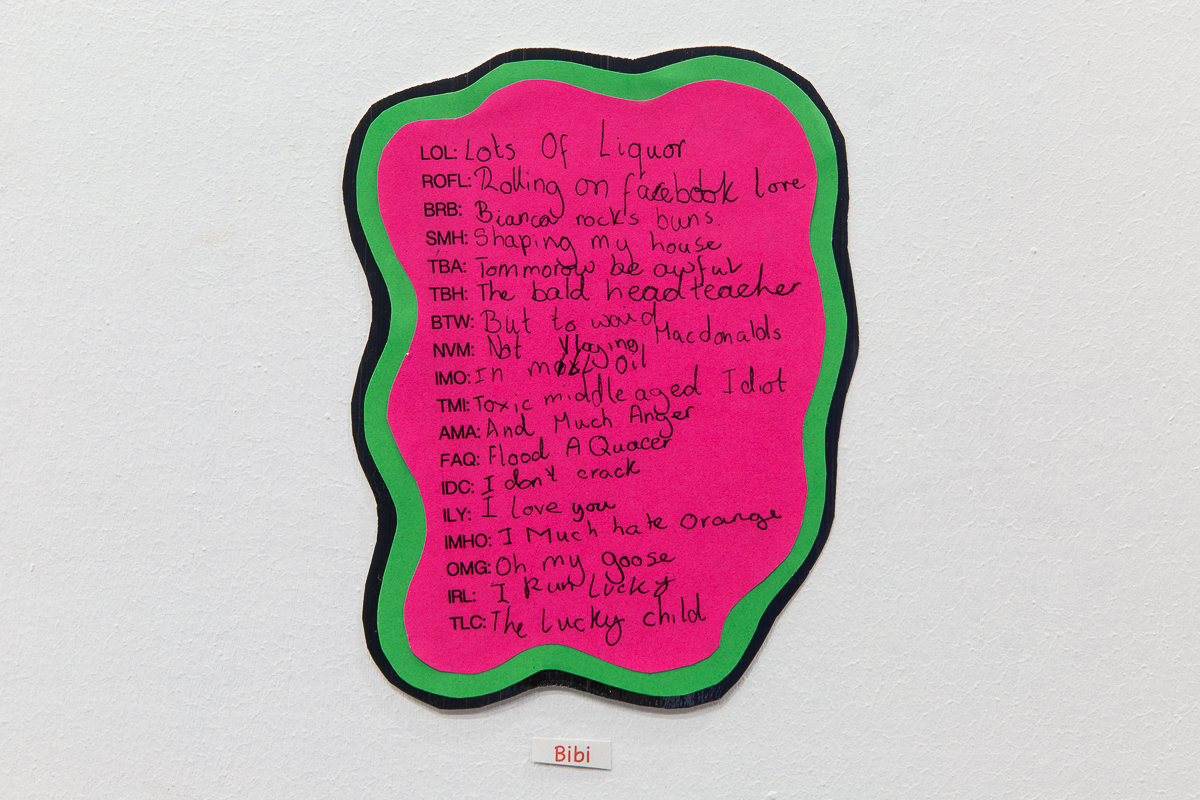 LOL: Lots Of Liquor
ROFL: Rolling on facebook love
BRB: Bianca rocks buns.
SMH: Shaping my house
TBA: Tommorow be awful
TBH: The bald headteacher
BTW: But to
NVM: Not Vlaging Macdonalds
IMO: In Oil
TMI: Toxic middle aged Idiot
AMA: And Much Anger
FAQ: Flood A Quacer
IDC: I don't crack
ILY: I love you
IMHO: I Much hate orange
OMG: Oh my goose
IRL: I Run Lucky
TLC: The Lucky child
Bibi